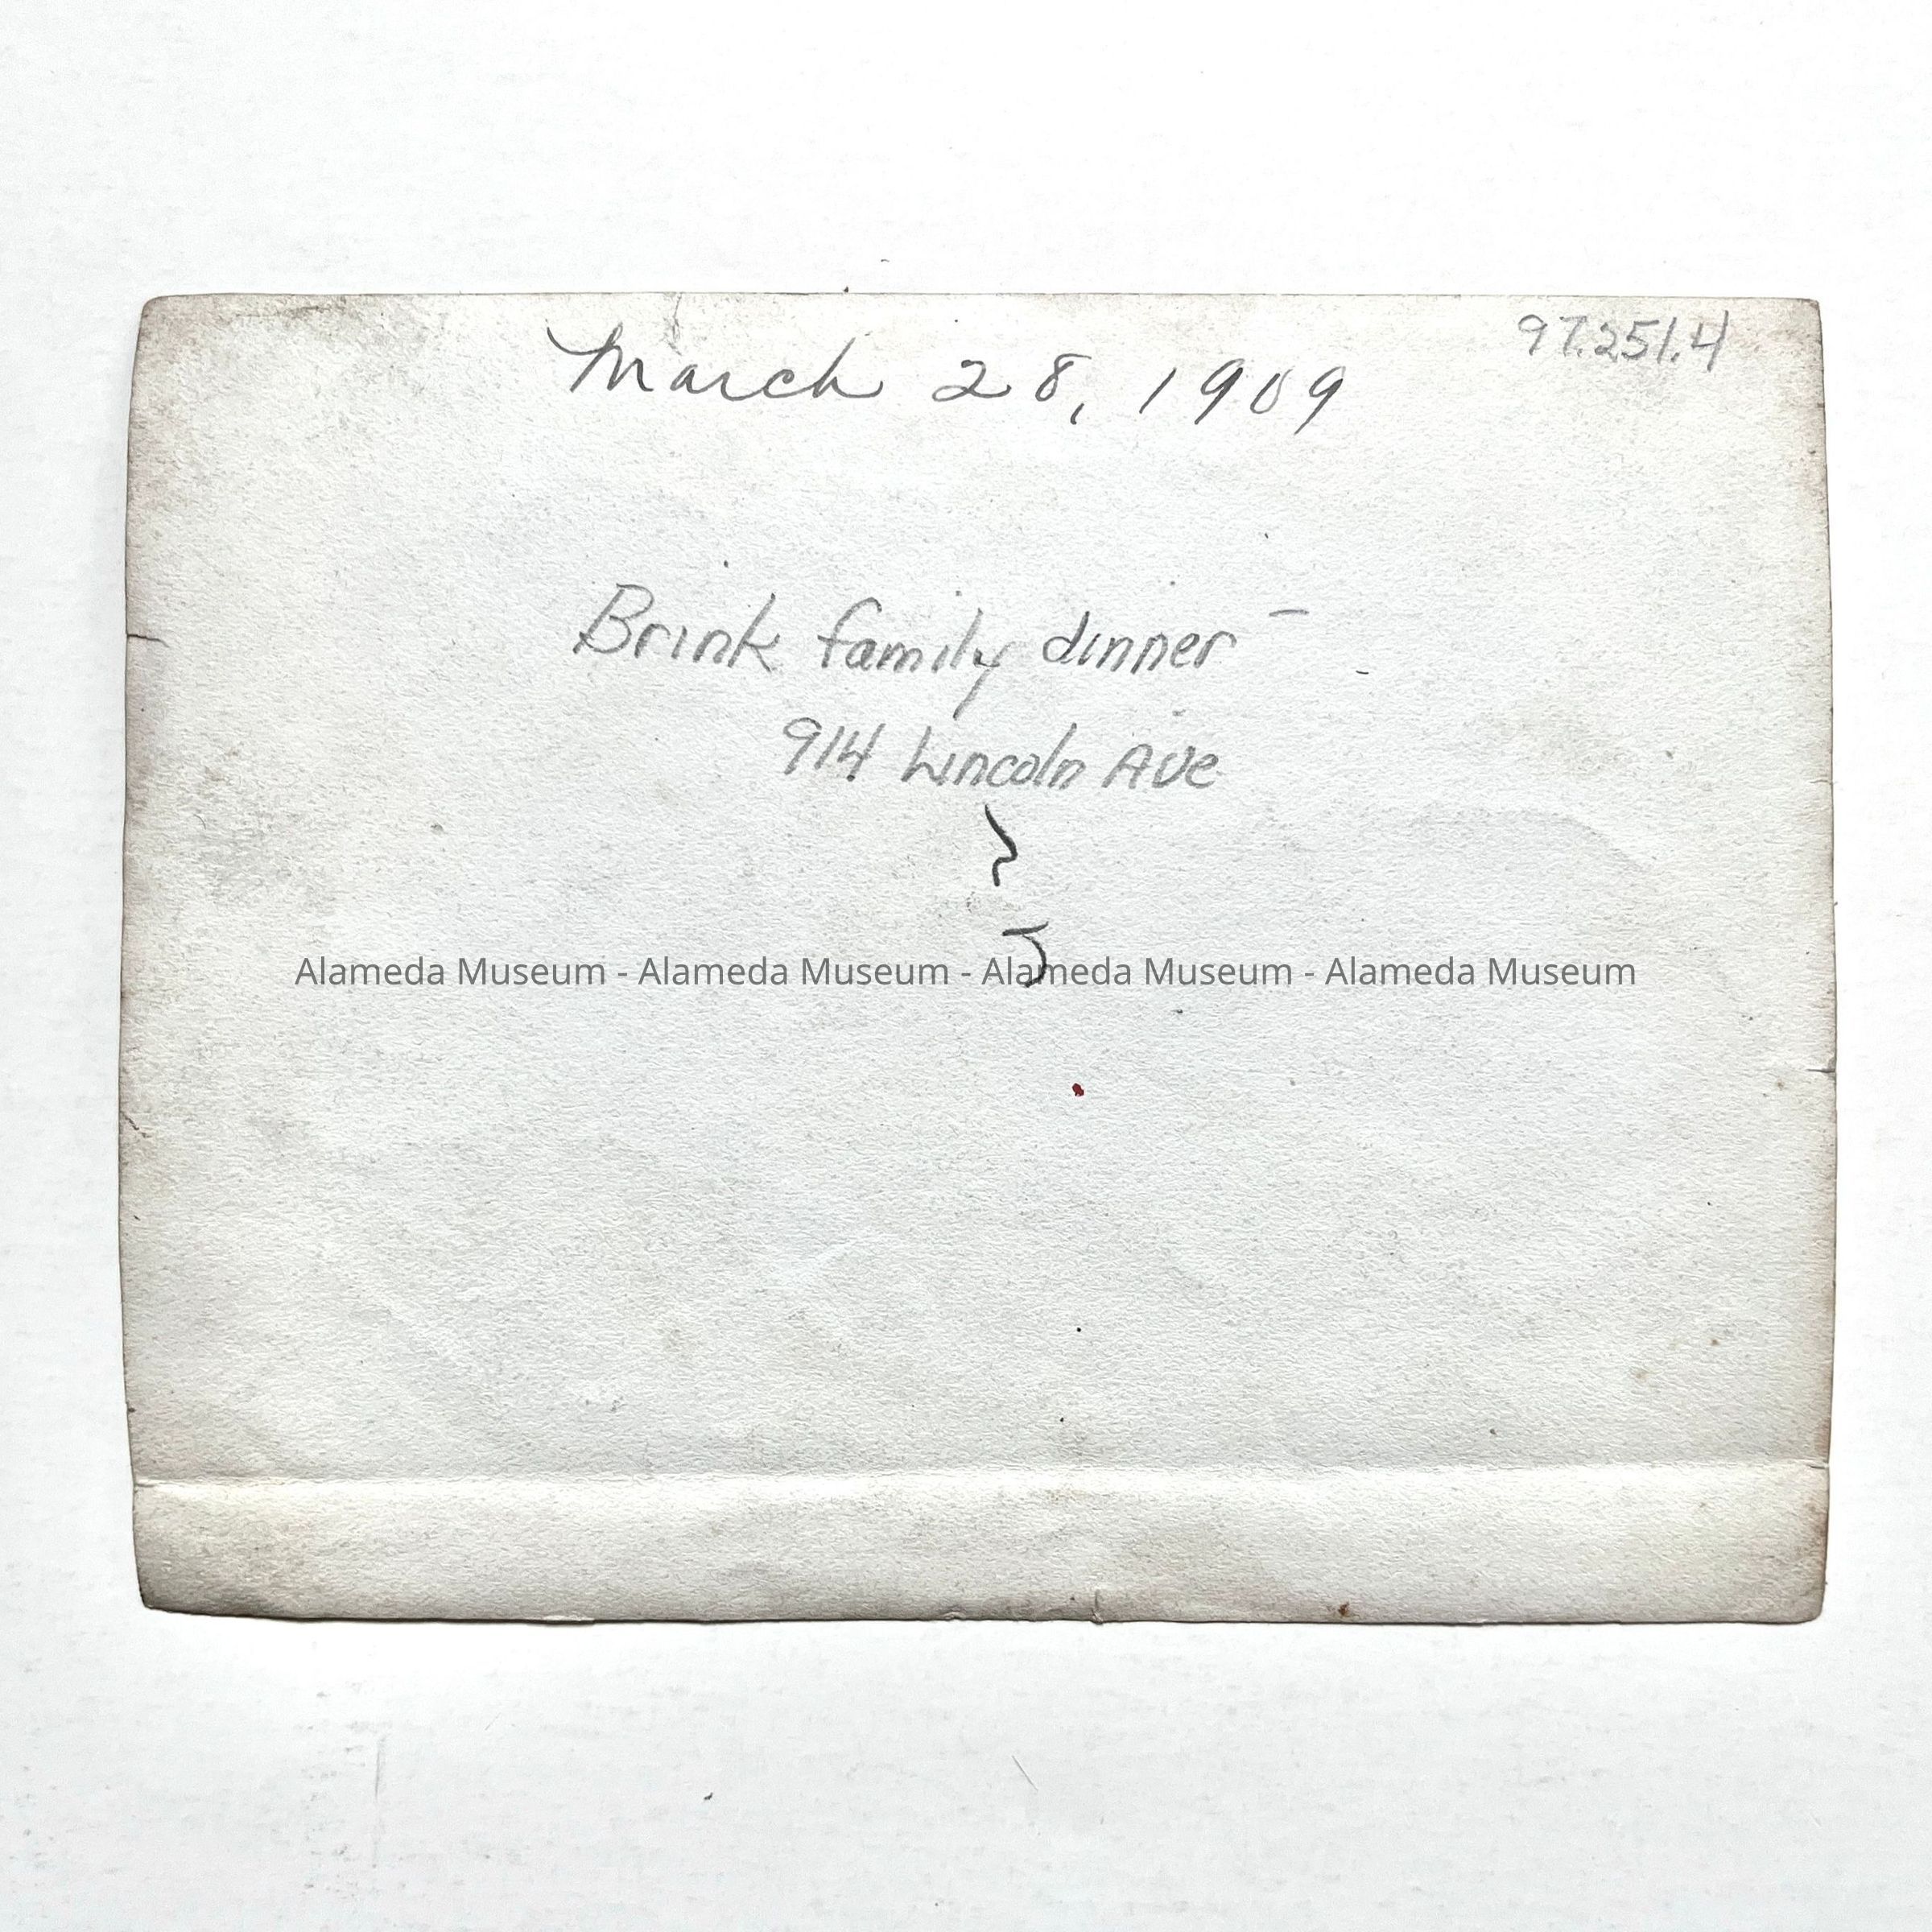 97.251.4
March 28, 1909
Brink family dinner –
914 Lincoln Ave
Alameda Museum - Alameda Museum - Alameda Museum - Alameda Museum